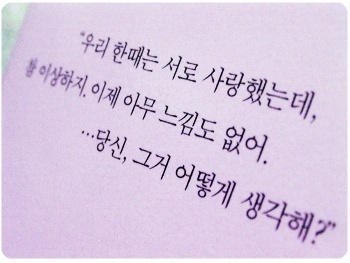 “우리 한때는 서로 사랑했는데,
참 이상하지. 이제 아무 느낌도 없어.
…당신, 그거 어떻게 생각해?”